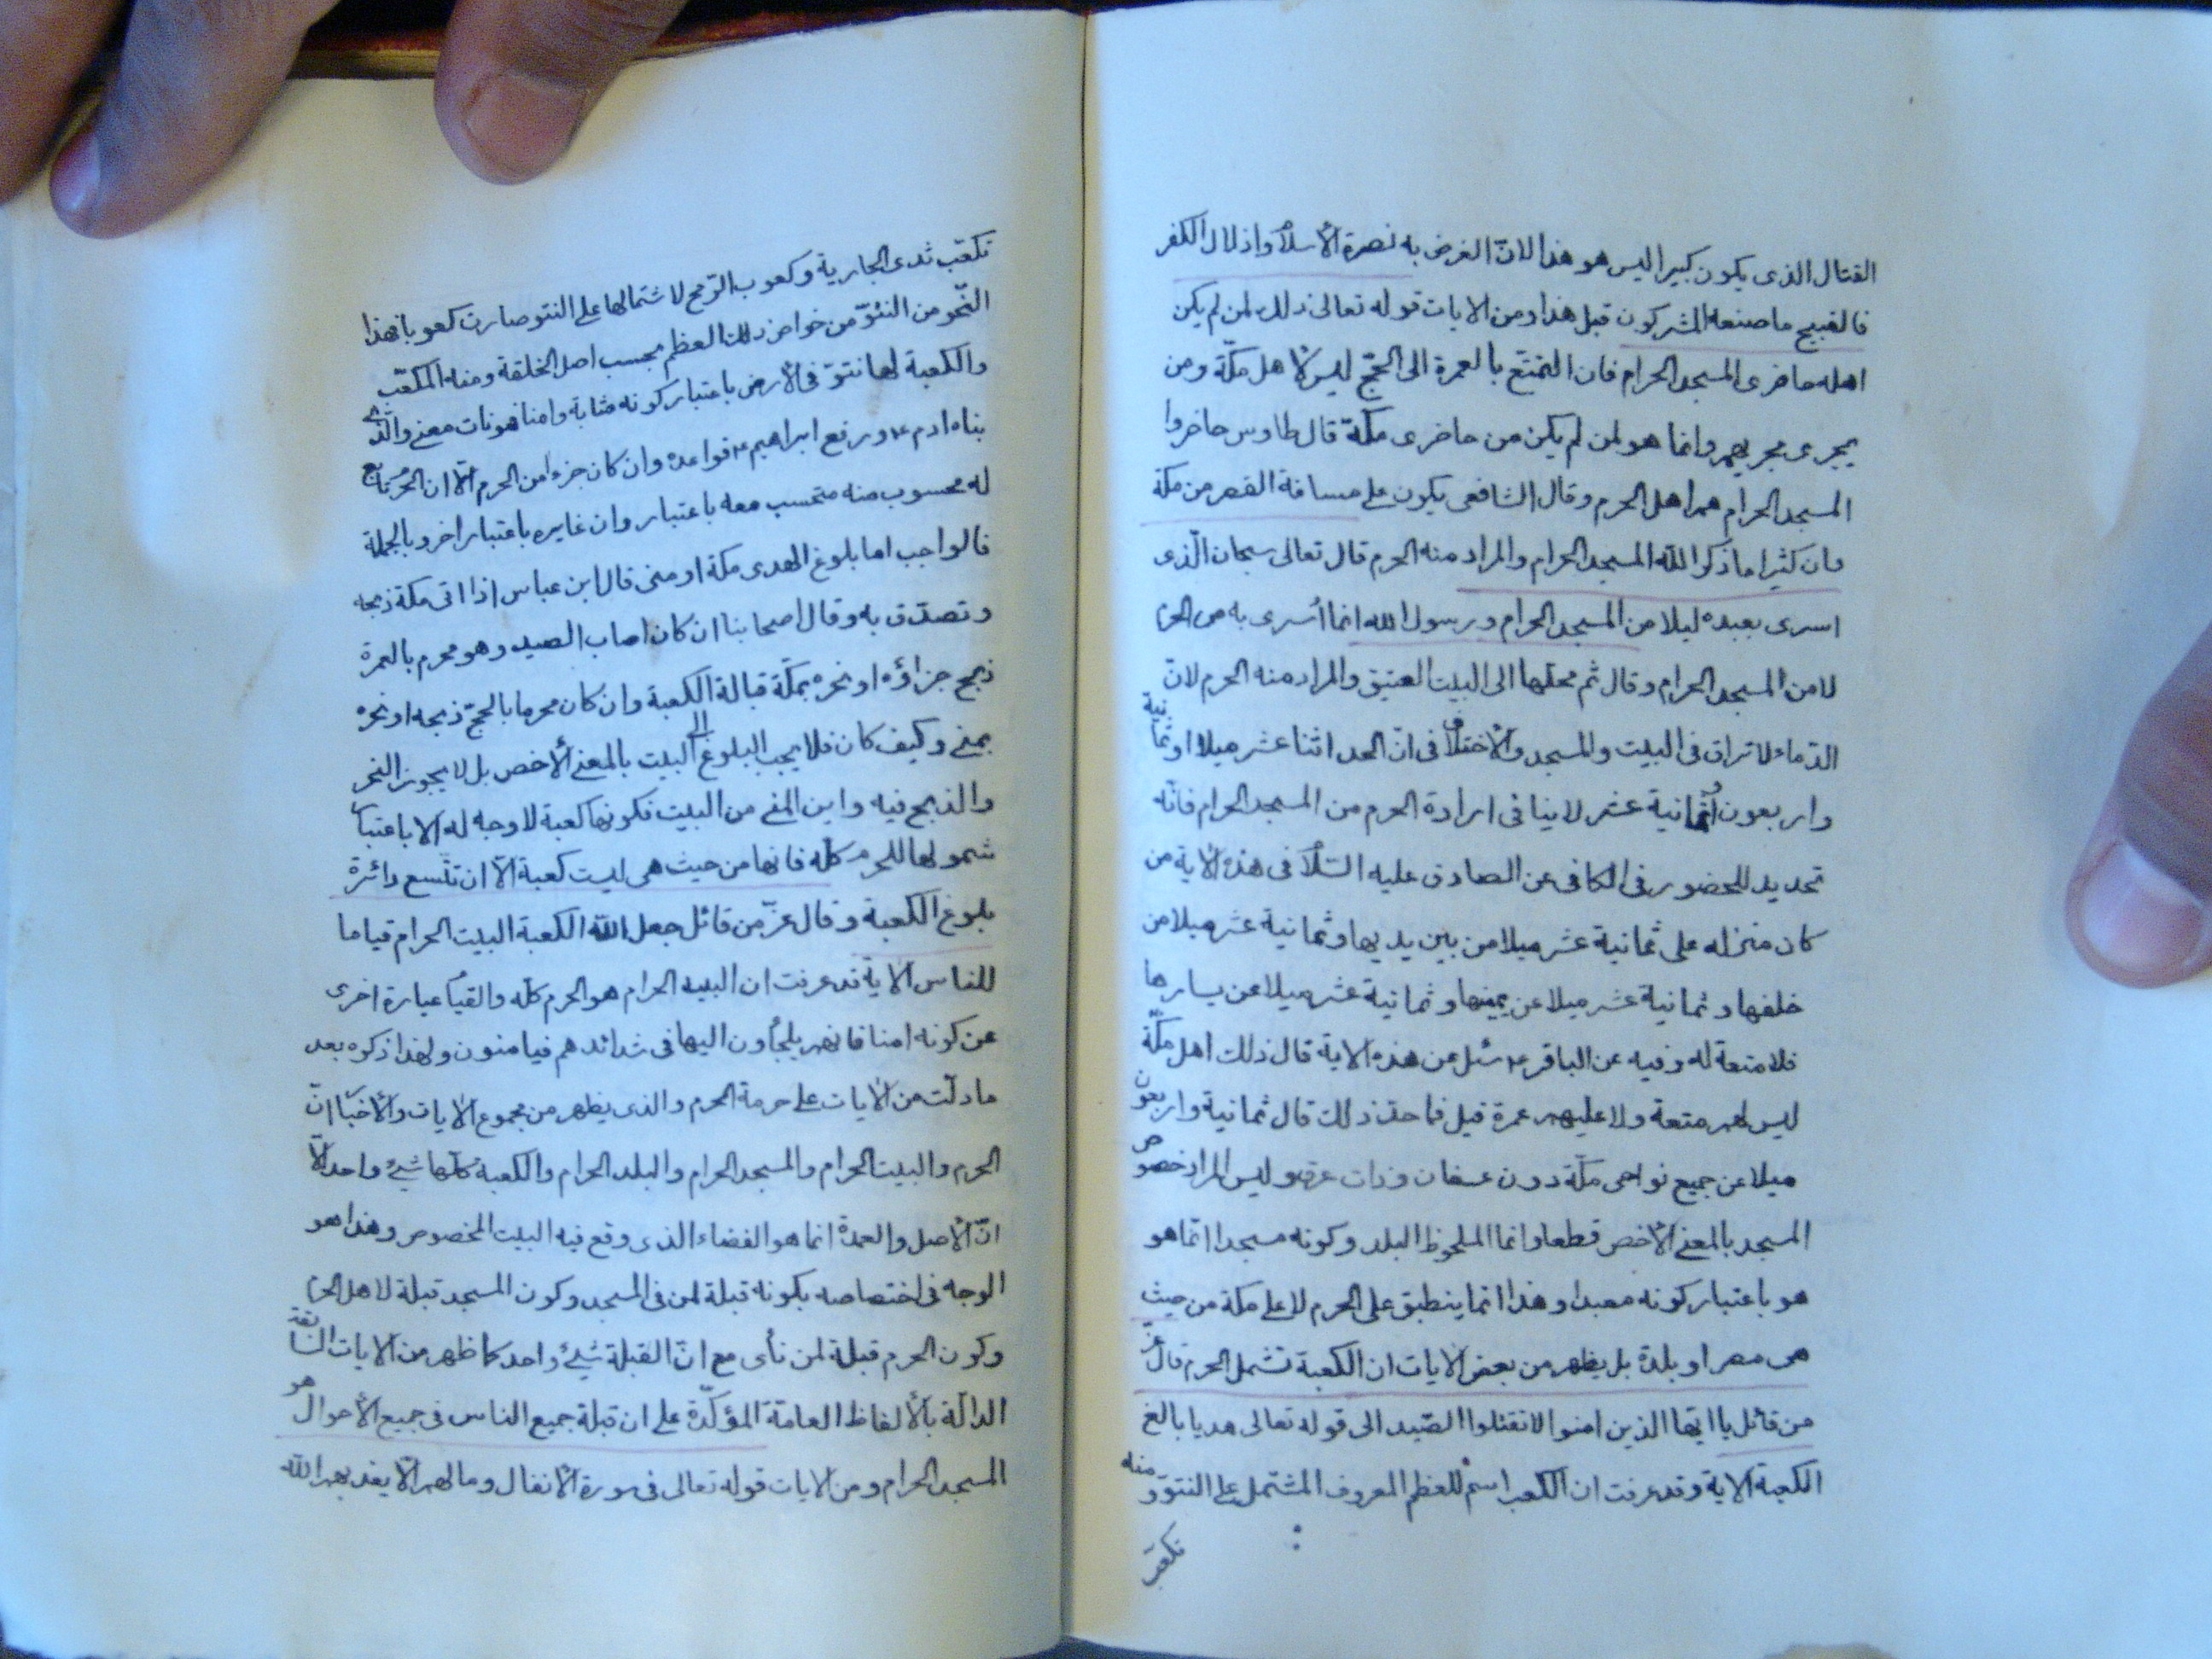 القتال الذى يكون كبيرا ليس هو هذا لانّ الغرض به نصرة الأسلام واذلال الكفر
فالقبيح ما صنعه المشركون قبل هذا ومن الايات قوله تعالى ذلك لمن لم يكن
اهله حاضرى المسجد الحرام فان التمتع بالعمرة الى الحجّ ليس لأهل مكّة ومن
يجرى مجريهم وانما هو لمن لم يكن من حاضرى مكّة قال طاوس حاضروا
المسجد الحرام هم اهل الحرم وقال الشافعى يكون على مسافة القصر من مكة
فان كثيرا ما ذكر الله المسجد الحرام والمراد منه الحرم قال تعالى سبحان الّذى
اسرى بعبده ليلا من المسجد الحرام ورسول الله انما أسرى به من الحرم
لا من المسجد الحرام وقال ثم محلها الى البيت العتيق والمراد منه الحرم لانّ
الدماء لا تراق فى البيت والمسجد والأختلاف فى انّ الحد اثنا عشر ميلا او ثمانية
واربعون أو ثمانية عشر لا ينافى ارادة الحرم من المسجد الحرام فانّه
تحديد للحضور فى الكافى عن الصادق عليه السّلام فى هذه الأية من
كان منزله على ثمانية عشر ميلا من بين يديها وثمانية عشر ميلا من
خلفها وثمانية عشر ميلا عن يمينها وثمانية عشر ميلا عن يسارها
فلا متعة له وفيه عن الباقر ع سئل عن هذه الاية قال ذلك اهل مكّة
ليس لهم متعة ولا عليهم عمرة قيل فما حدّ ذلك قال ثمانية واربعون
ميلا عن جميع نواحى مكّة دون عسفان وذات عرق وليس المراد خصوص
المسجد بالمعنى الأخص قطعا وانما الملحوظ البلد وكونه مسجدا انّما هو
هو باعتبار كونه معبدا وهذا انما ينطبق على الحرم لا على مكة من حيث
هى مصر او بلدة بل يظهر من بعض الايات ان الكعبة تشمل الحرم قال عزّ
من قائل يا ايّها الذين امنوا لا تقتلوا الصّيد الى قوله تعالى هديا بالغ
الكعبة الاية وقد عرفت ان الكعب اسم للعظم المعروف المشتمل على النتوّ ومنه
تكعّب
تكعّب ثدى الجارية وكعوب الرّمح لاشتمالها على النتو صارت كعوبا بهذا
النّحو من النتوّ من خواص ذلك العظم بحسب اصل الخلقة ومنه المكعّب
والكعبة لها نتوّ فى الأرض باعتبار كونه مثابة وامنا فهو نات معنى والّذى
بناه ادم ع ورفع ابراهيم ع قواعده وان كان جزءا من الحرم الّا ان الحرم تابع
له محسوب منه متحسب معه باعتبار وان غايره باعتبار اخر وبالجملة
فالواجب اما بلوغ الهدى مكة او منى قال ابن عباس اذا اتى مكة ذبحه
وتصدّق به وقال اصحابنا ان كان اصاب الصيد وهو محرم بالعمرة
ذبح جزاؤه او نحره بمكّة قبالة الكعبة وان كان محرما بالحجّ ذبحه او نحره
بمنى وكيف كان فلا يجب البلوغ الى البيت بالمعنى الأخص بل لا يجوز النحر
والذبح فيه واين المنى من البيت فكونها كعبة لا وجه له الا باعتبار
شمولها للحرم كلّه فانها من حيث هى ليست كعبة الّا ان تتّسع دائرة
بلوغ الكعبة وقال عزّ من قائل جعل الله الكعبة البيت الحرام قياما
للناس الأية قد عرفت ان البيت الحرام هو الحرم كلّه والقيام عبارة اخرى
عن كونه امنا فانهم يلجأون اليها فى شدائدهم فيامنون ولهذا ذكره بعد
ما دلّت من الأيات على حرمة الحرم والذى يظهر من مجموع الأيات والأخبار انّ
الحرم والبيت الحرام والمسجد الحرام والبلد الحرام والكعبة كلّها شئ واحد الّا
انّ الأصل والعمدة انما هو الفضاء الذى وقع فيه البيت المخصوص وهذا هو
الوجه فى اختصاصه بكونه قبلة لمن فى المسجد وكون المسجد قبلة لاهل الحرم
وكون الحرم قبلة لمن نأى مع انّ القبلة شئ واحد كما ظهر من الايات السّابقة
الدالّة بالألفاظ العامّة المؤكّدة على ان قبلة جميع الناس فى جميع الأحوال هو
المسجد الحرام ومن الايات قوله تعالى فى سورة الأنفال وما لهم الّا يعذبهم الله